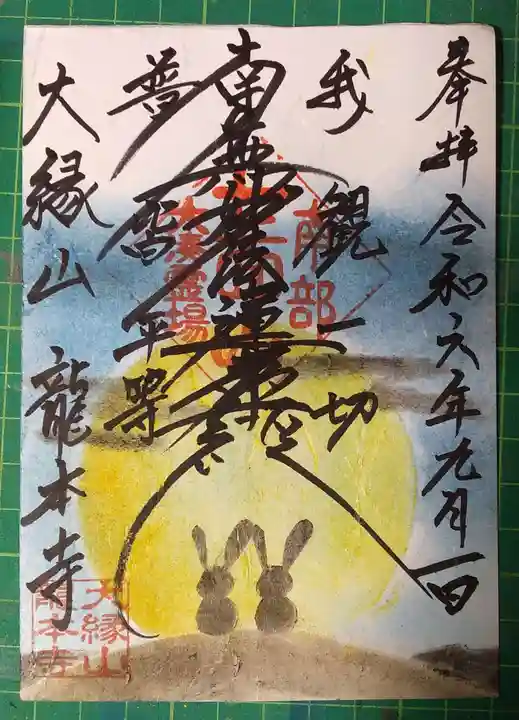 奉拝 令和六年九月一日
我観一切
南無妙法蓮華経
普皆平等
大縁山 龍本寺
南部
霊場
大縁山
龍本寺